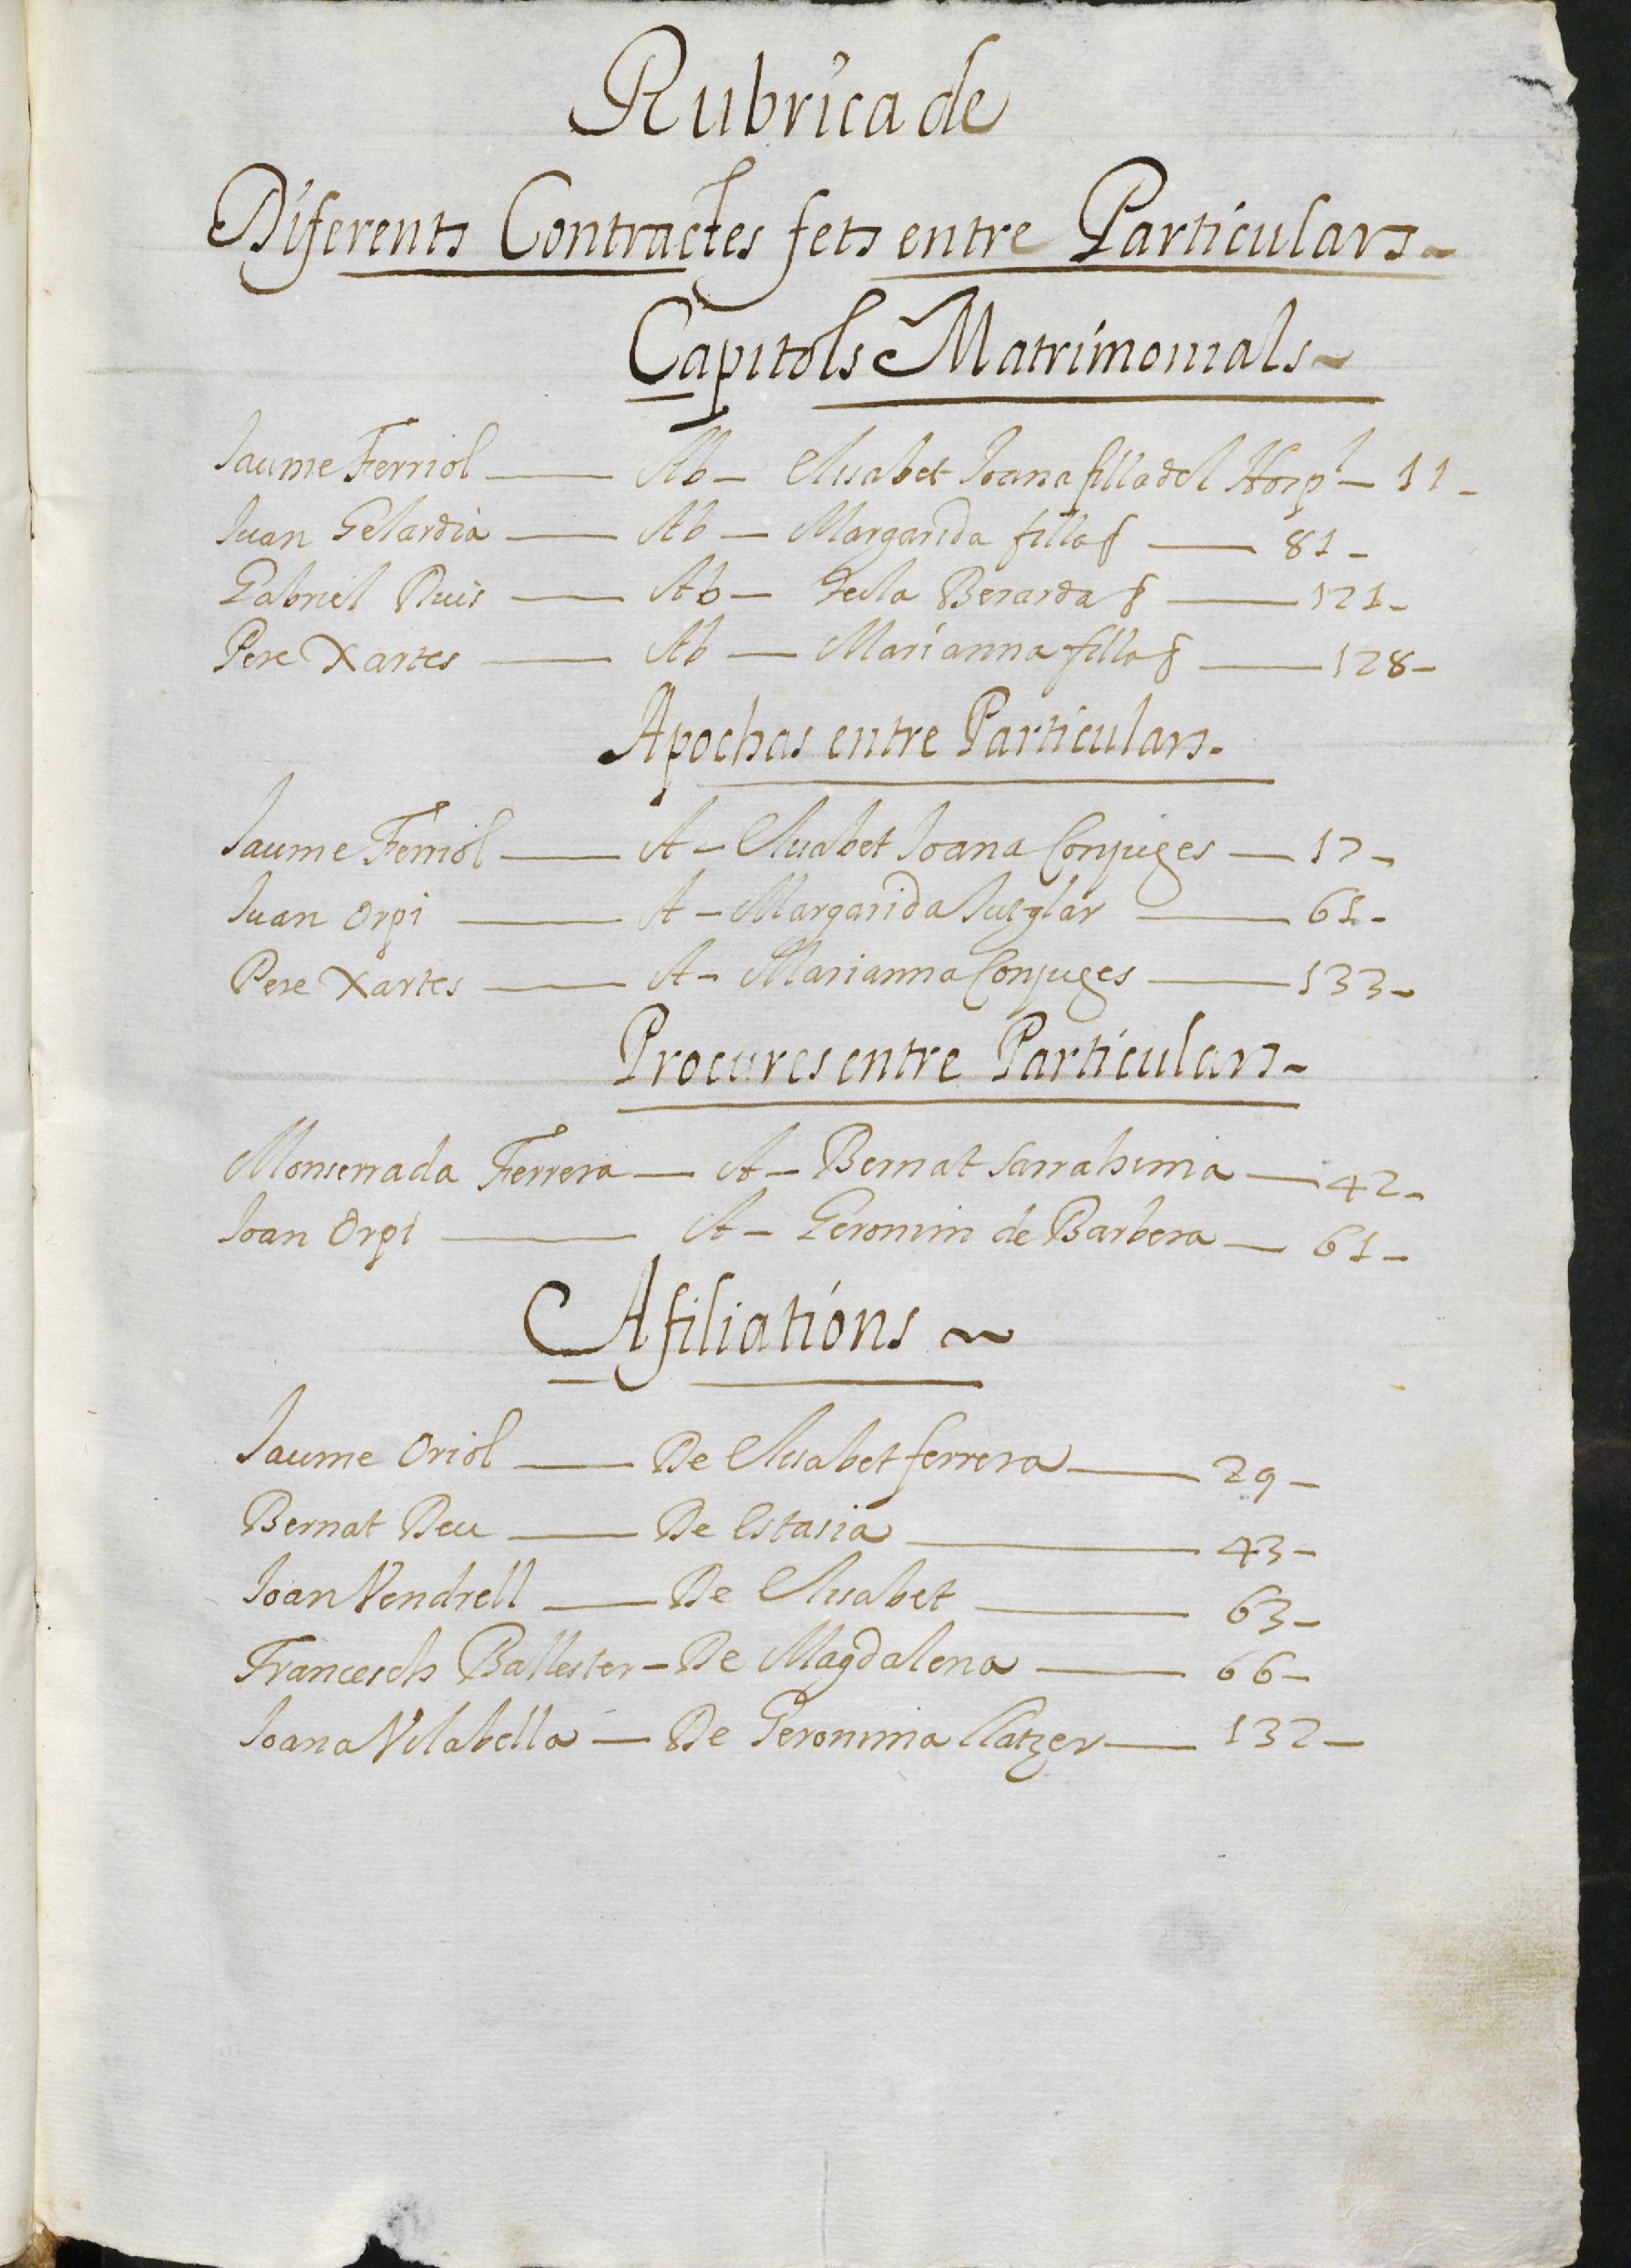 Rubrica de
Diferents Contractes fets entre Particulars
Capitols Matrimonials
Jaume Ferriol — Ab — Elisabet Joana filla del Hospl — 11
Juan Gelardia — Ab — Margarida filla — 81
Gabriel Ruis — Ab — Tecla Berarda — 121
Pere Xartes — Ab — Marianna filla — 128
Apochas entre Particulars
Jaume Ferriol — A — Elisabet Joana Conjuges — 17
Juan Orpi — A — Margarida Juglar — 61
Pere Xartes — A — Marianna Conjuges — 133
Procures entre Particulars
Monserrada Ferrera — A — Bernat Sarrahima — 42
Joan Orpi — A — Geronim de Barbera — 61
Afiliations
Jaume Oriol — De Elisabet ferrera — 29
Bernat Deu — De Estasia — 43
Joan Vendrell — De Elisabet — 63
Francesch Ballester — De Magdalena — 66
Joana Vilabella — De Geronima Llatzer — 132